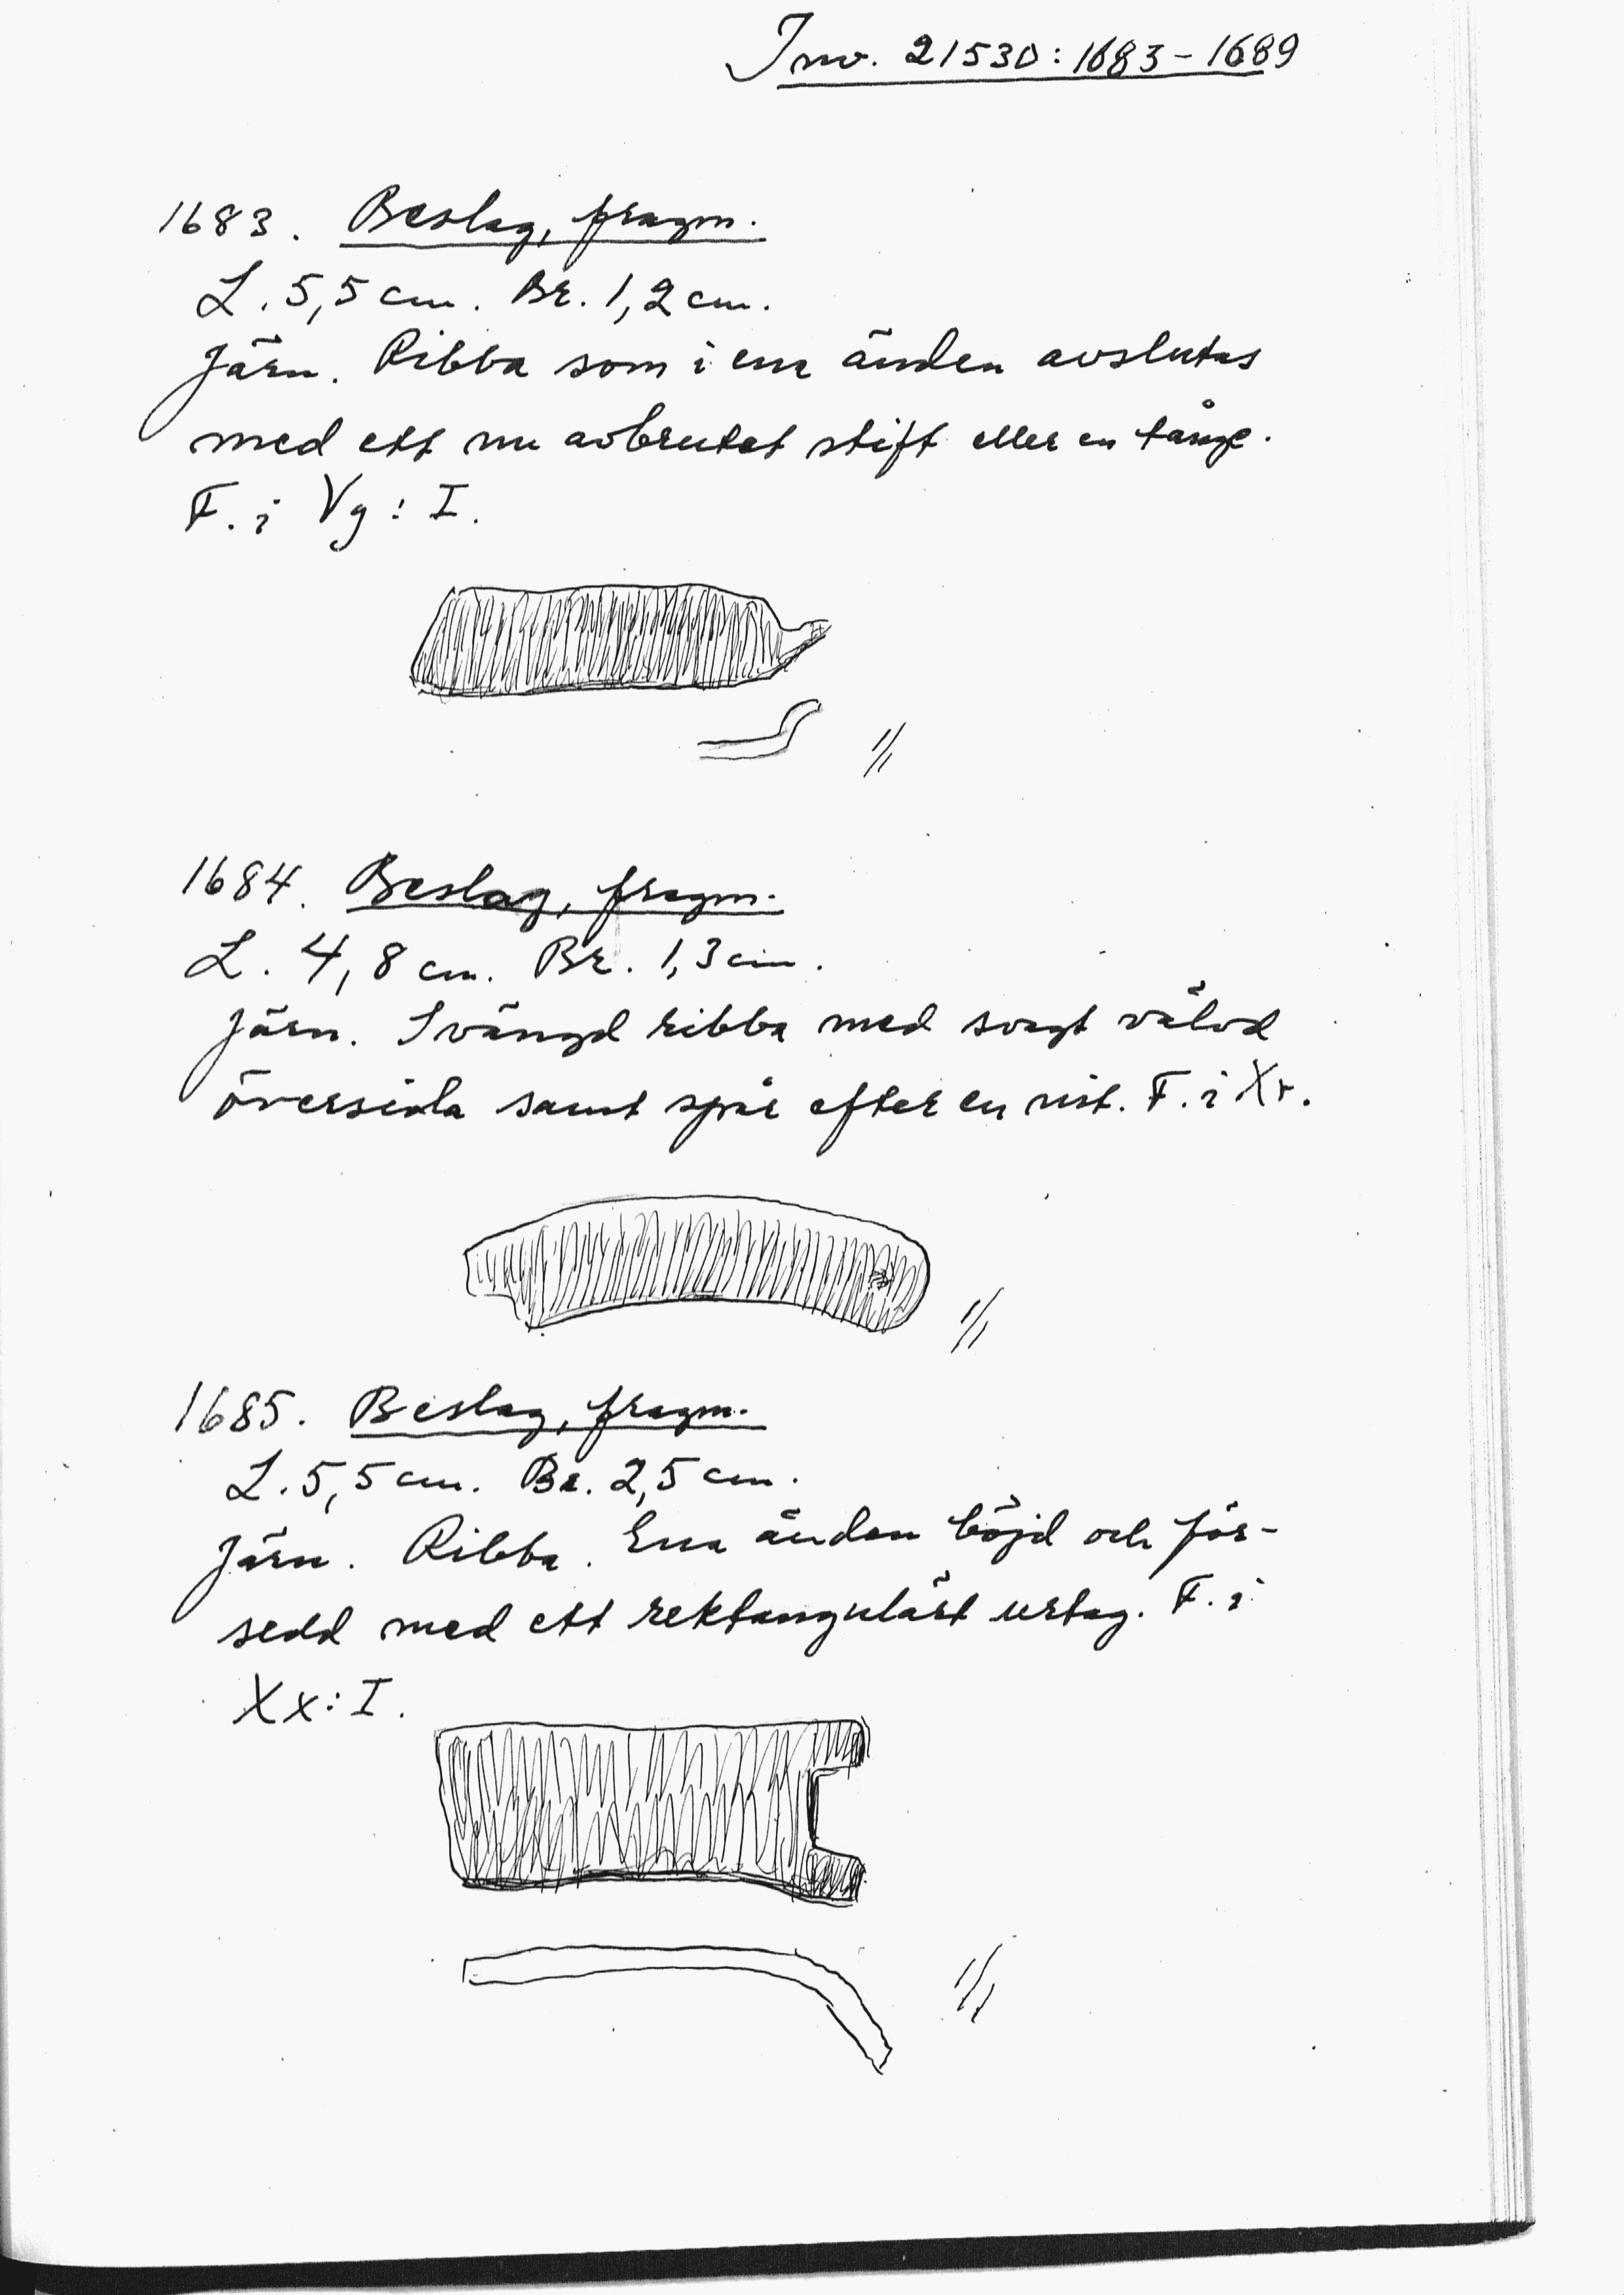 Inv. 21530:1683-1689
1683. Beslag, fragm.
L. 5,5 cm. Br. 1,2 cm.
Järn. Ribba som i ena änden avslutas
med ett nu avbrutet stift eller en tånge.
F. i Vg: I.
1/1
1684. Beslag, fragm.
L. 4,8 cm. Br. 1,3 cm.
Järn. Svängd ribba med svagt välvd
översida samt spår efter en nit. F. i Xr.
1/1
1685. Beslag, fragm.
L. 5,5 cm. Br. 2,5 cm.
Järn. Ribba. Ena änden böjd och för-
sedd med ett rektangulärt urtag. F. i
Xx: I.
1/1